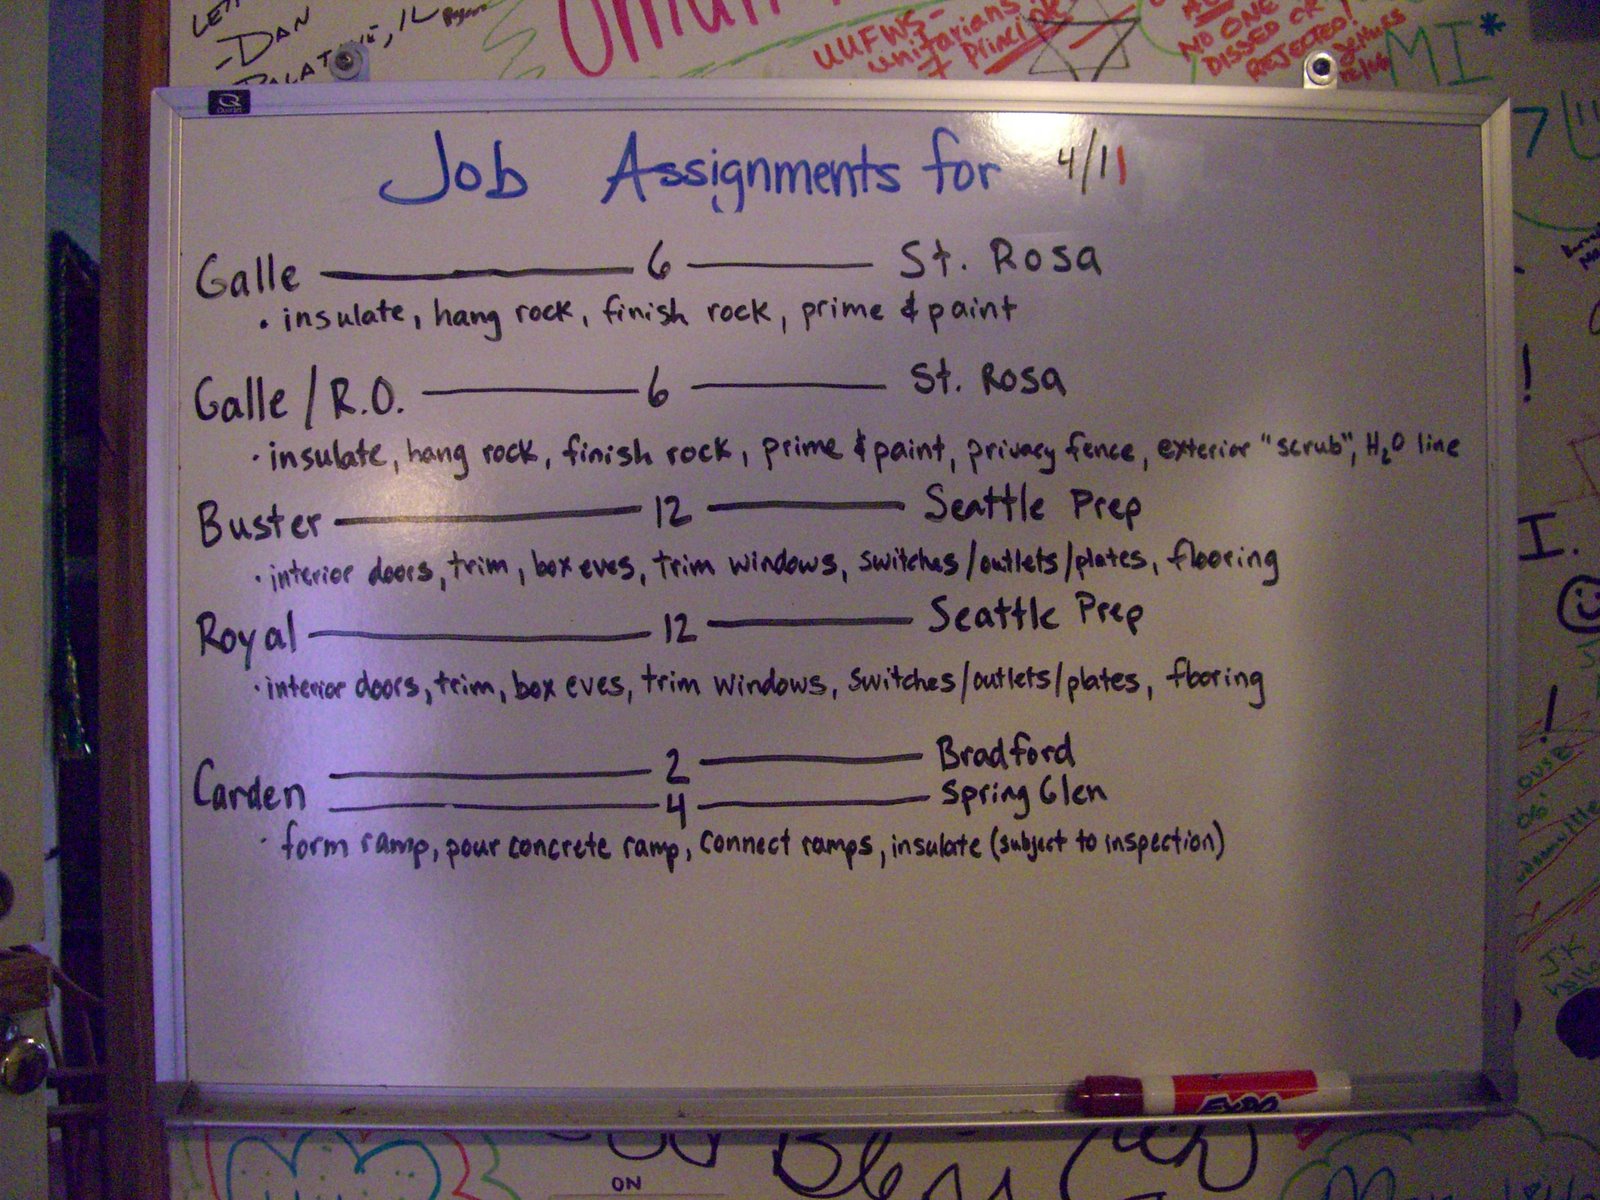 -DAN
UUFWS-
unitarians
7 Principle
NO ONE
DISSED OR
REJECTED!
MI*
Quartet
Job Assignments for 4/11
Galle 6 St. Rosa
• insulate, hang rock, finish rock, prime & paint
Galle / R.O. 6 St. Rosa
• insulate, hang rock, finish rock, prime & paint, privacy fence, exterior "scrub", H2O line
Buster 12 Seattle Prep
• interior doors, trim, box eves, trim windows, switches/outlets/plates, flooring
Royal 12 Seattle Prep
• interior doors, trim, box eves, trim windows, switches/outlets/plates, flooring
2 Bradford
Carden 4 Spring Glen
• form ramp, pour concrete ramp, connect ramps, insulate (subject to inspection)
I.
EXPO
ON